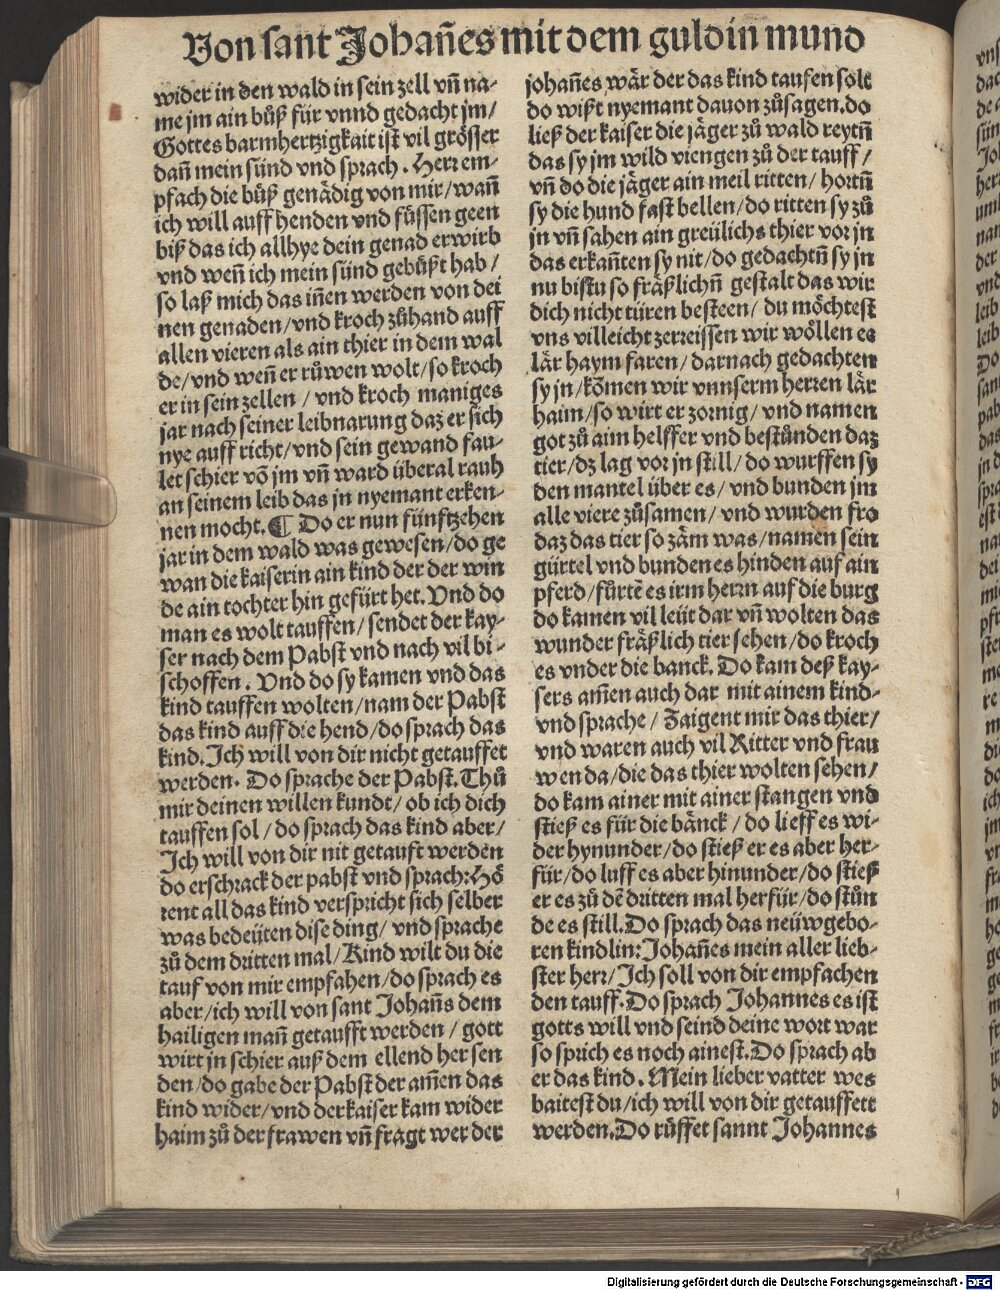 Von sant Johañes mit dem guldin mund
wider in den wald in sein zell vñ na-
me jm ain bůß für vnnd gedacht jm/
Gottes barmhertzigkait ist vil grösser
dañ mein sünd vnd sprach. Herr em-
pfach die bůß genädig von mir/wañ
ich will auff henden vnd füssen geen
biß das ich allhye dein genad erwirb
vnd weñ ich mein sünd gebüßt hab/
so laß mich das iñen werden von dei
nen genaden/vnd kroch zůhand auff
allen vieren als ain thier in dem wal
de/vnd weñ er růwen wolt/so kroch
er in sein zellen / vnd kroch maniges
jar nach seiner leibnarung daz er sich
nye auff richt/vnd sein gewand fau-
let schier võ jm vñ ward überal rauh
an seinem leib das jn nyemant erken-
nen mocht. ¶ Do er nun fünftzehen
jar in dem wald was gewesen/do ge
wan die kaiserin ain kind der der win
de ain tochter hin gefürt het. Vnd do
man es wolt tauffen/sendet der kay-
ser nach dem Pabst vnd nach vil bi-
schoffen. Vnd do sy kamen vnd das
kind tauffen wolten/nam der Pabst
das kind auff die hend/do sprach das
kind. Ich will von dir nicht getauffet
werden. Do sprache der Pabst. Thů
mir deinen willen kundt/ ob ich dich
tauffen sol/do sprach das kind aber/
Ich will von dir nit getauft werden
do erschrack der pabst vnd sprach: Hö
rent all das kind verspricht sich selber
was bedeüten dise ding/ vnd sprache
zů dem dritten mal/Kind wilt du die
tauf von mir empfahen/do sprach es
aber/ich will von sant Johañs dem
hailigen mañ getaufft werden / gott
wirt jn schier auß dem ellend her sen
den/do gabe der Pabst der amen das
kind wider/vnd der kaiser kam wider
haim zů der frawen vñ fragt wer der
johañes wär der das kind taufen solt
do wißt nyemant dauon zůsagen. do
ließ der kaiser die jäger zů wald reytñ
das sy jm wild viengen zů der tauff/
vñ do die jäger ain meil ritten/ hortñ
sy die hund fast bellen/do ritten sy zů
jn vñ sahen ain greülichs thier vor jn
das erkañten sy nit/do gedachtñ sy jn
nu bistu so fräßlichñ gestalt das wir
dich nicht türen besteen/ du möchtest
vns villeicht zerreissen wir wöllen es
lär haym faren/darnach gedachten
sy jn/kõmen wir vnnserm herren lär
haim/so wirt er zornig/vnd namen
got zů aim helffer vnd bestůnden daz
tier/dz lag vor jn still/do wurffen sy
den mantel über es/vnd bunden jm
alle viere zůsamen/ vnd wurden fro
daz das tier so zäm was/namen sein
gürtel vnd bunden es hinden auf ain
pferd/fürtẽ es irm herrn auf die burg
do kamen vil leüt dar vñ wolten das
wunder fräßlich tier sehen/do kroch
es vnder die banck. Do kam deß kay-
sers amen auch dar mit ainem kind-
vnd sprache/ Zaigent mir das thier/
vnd waren auch vil Ritter vnd frau
wen da/die das thier wolten sehen/
do kam ainer mit ainer stangen vnd
stieß es für die bänck/do lieff es wi-
der hynunder/do stieß er es aber her-
für/do luff es aber hinunder/do stieß
er es zů dẽ dritten mal herfür/do stůn
de es still. Do sprach das neüwgebo-
ren kindlin: Johañes mein aller lieb-
ster herr/Ich soll von dir empfachen
den tauff. Do sprach Johannes es ist
gotts will vnd seind deine wort war
so sprich es noch ainest. Do sprach ab
er das kind. Mein lieber vatter wes
baitest du/ich will von dir getauffett
werden. Do růffet sannt Johannes
Digitalisierung gefördert durch die Deutsche Forschungsgemeinschaft - DFG